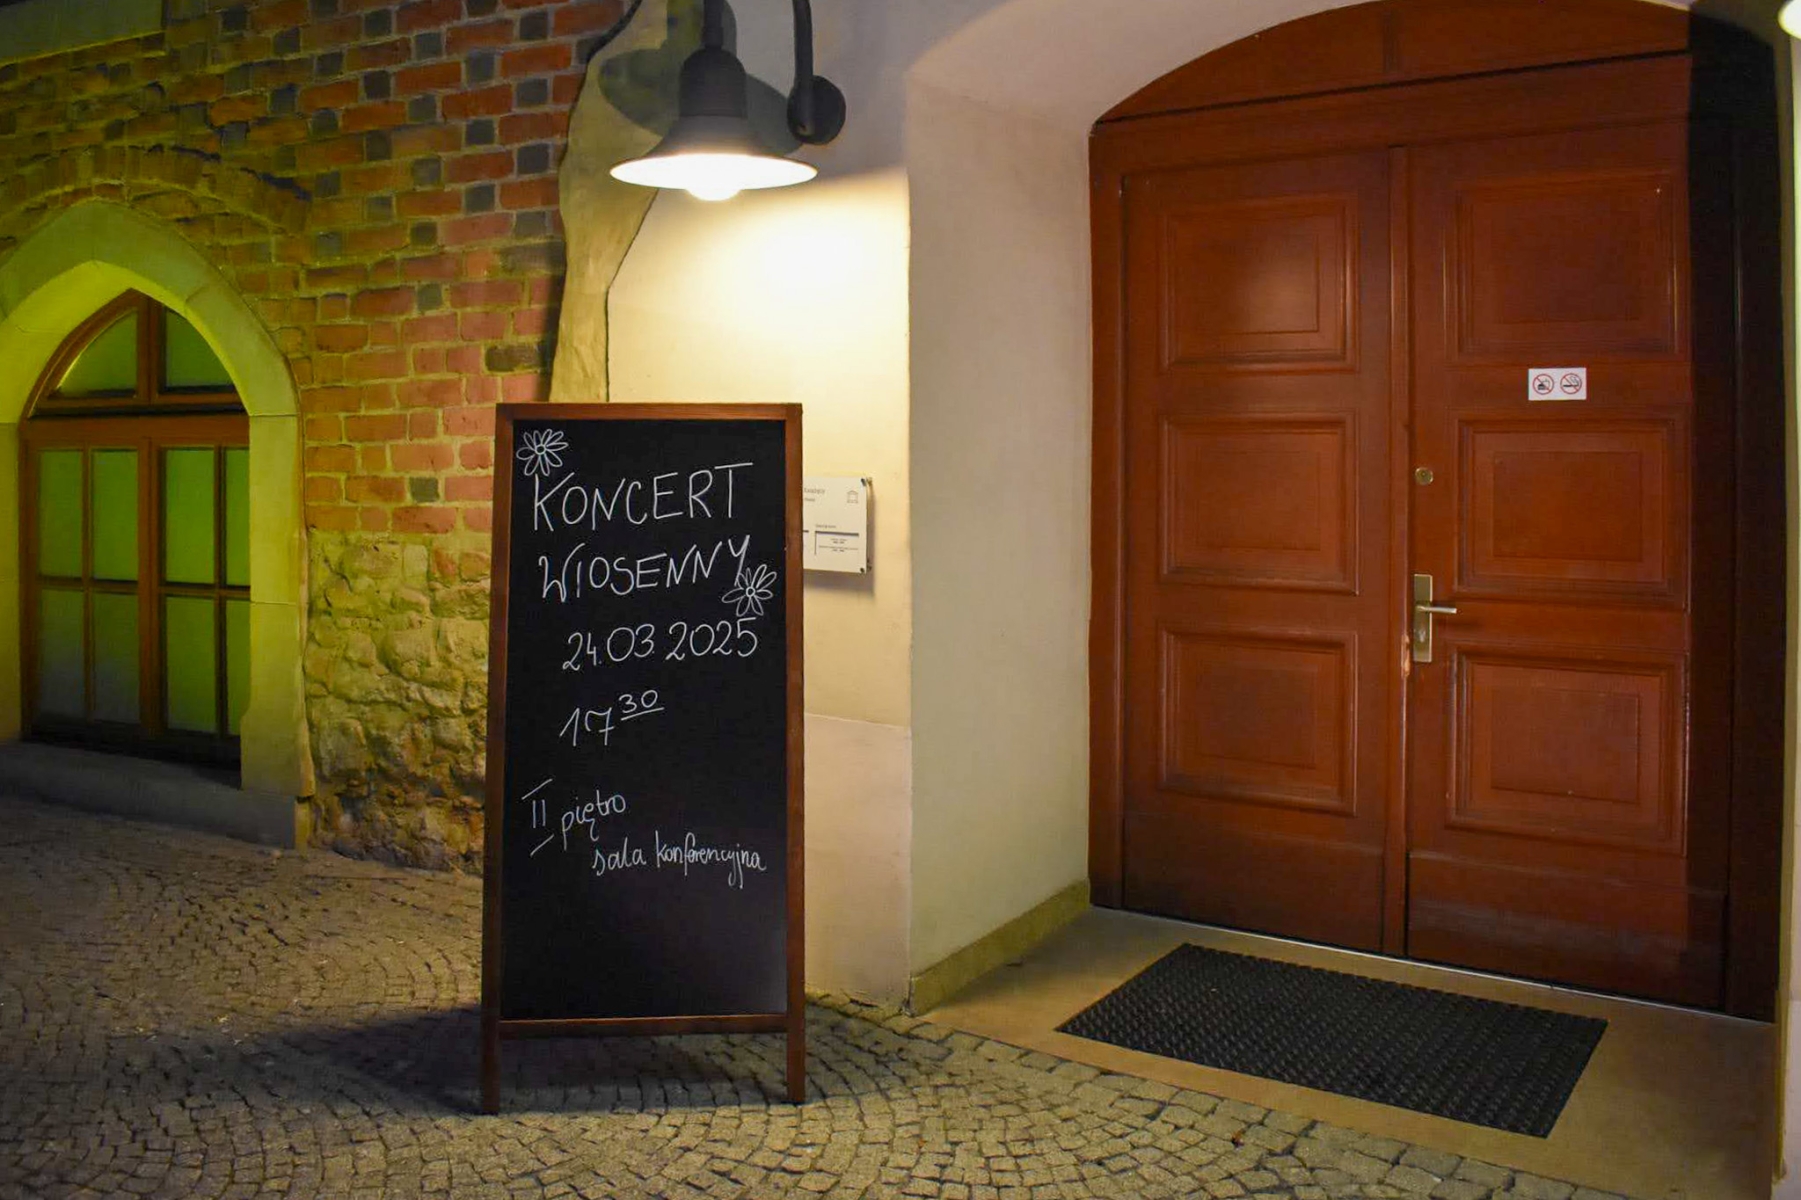 KONCERT
WIOSENNY
24.03.2025
17³⁰
II piętro
sala konferencyjna